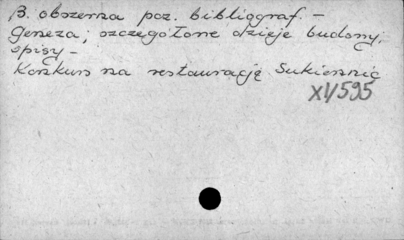 B. obszerna poz. bibliograf. -
Geneza; szczegółowe dzieje budowy;
opisy -
Konkurs na restaurację Sukiennic
XI/595